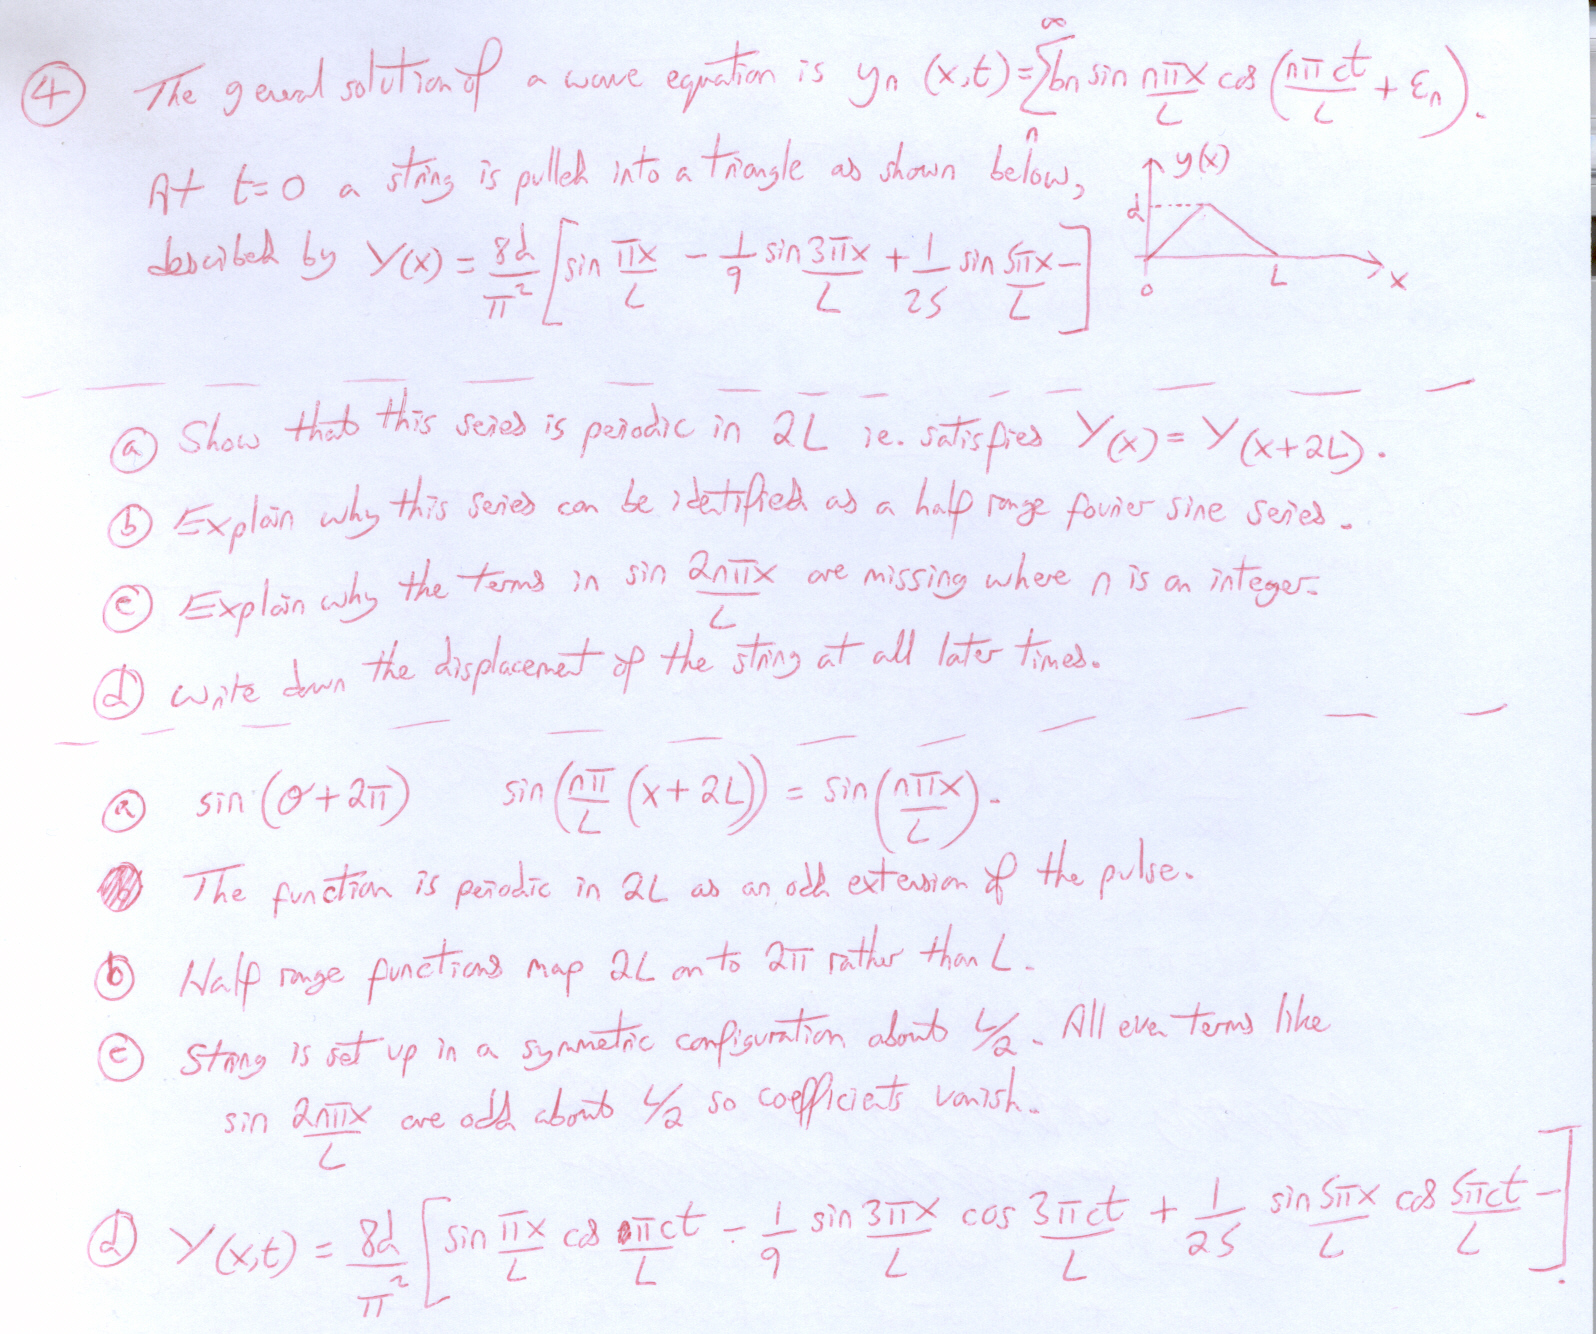 ④ The general solution of a wave equation is yₙ (x,t) = ∞ Σ n bₙ sin nπx/L cos (nπct/L + εₙ).
At t=0 a string is pulled into a triangle as shown below,
described by Y(x) = 8d/π² [sin πx/L - 1/9 sin 3πx/L + 1/25 sin 5πx/L -]
y(x)
d
0 L x
ⓐ Show that this series is periodic in 2L ie. satisfies Y(x) = Y(x+2L).
ⓑ Explain why this series can be identified as a half range fourier sine series.
ⓒ Explain why the terms in sin 2nπx/L are missing where n is an integer.
ⓓ write down the displacement of the string at all later times.
ⓐ sin (θ+2π) sin (nπ/L (x+2L)) = sin (nπx/L).
The function is periodic in 2L as an odd extension of the pulse.
ⓑ Half range functions map 2L on to 2π rather than L.
ⓒ String is set up in a symmetric configuration about L/2. All even terms like
sin 2nπx/L are odd about L/2 so coefficients vanish.
ⓓ Y(x,t) = 8d/π² [sin πx/L cos πct/L - 1/9 sin 3πx/L cos 3πct/L + 1/25 sin 5πx/L cos 5πct/L -].